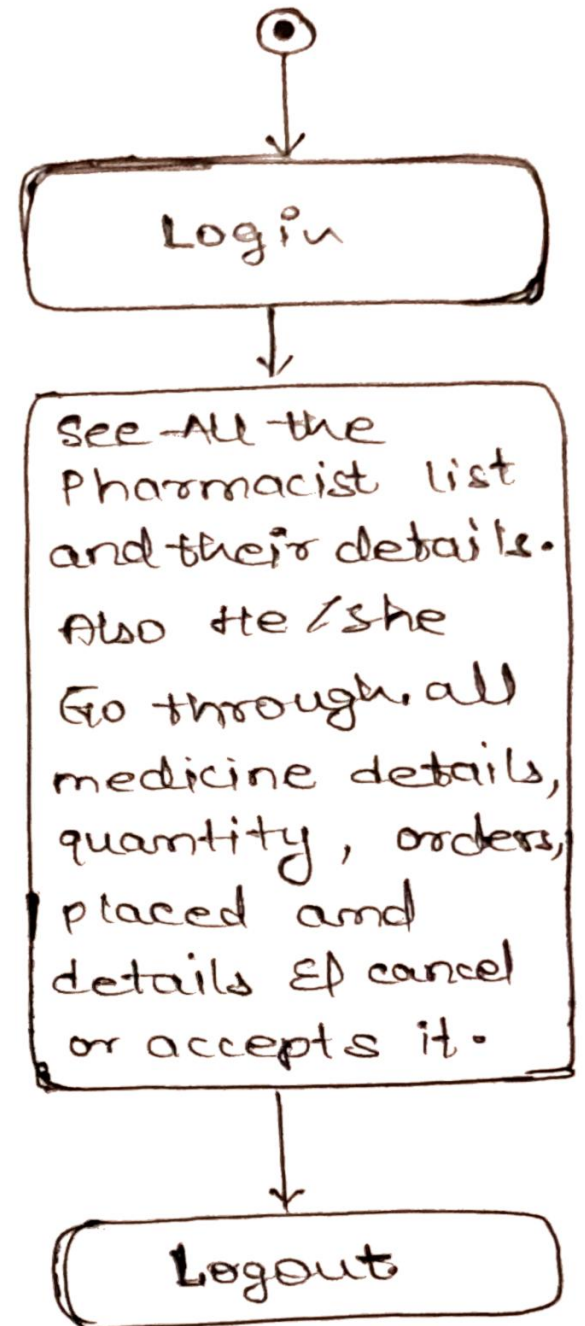 Login
See All the
Pharmacist list
and their details.
Also He/she
Go through all
medicine details,
quantity, orders,
placed and
details & cancel
or accepts it.
Logout